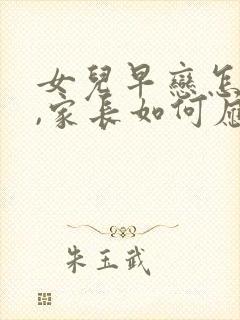 女兒早戀怎
,家長如何應
朱玉武